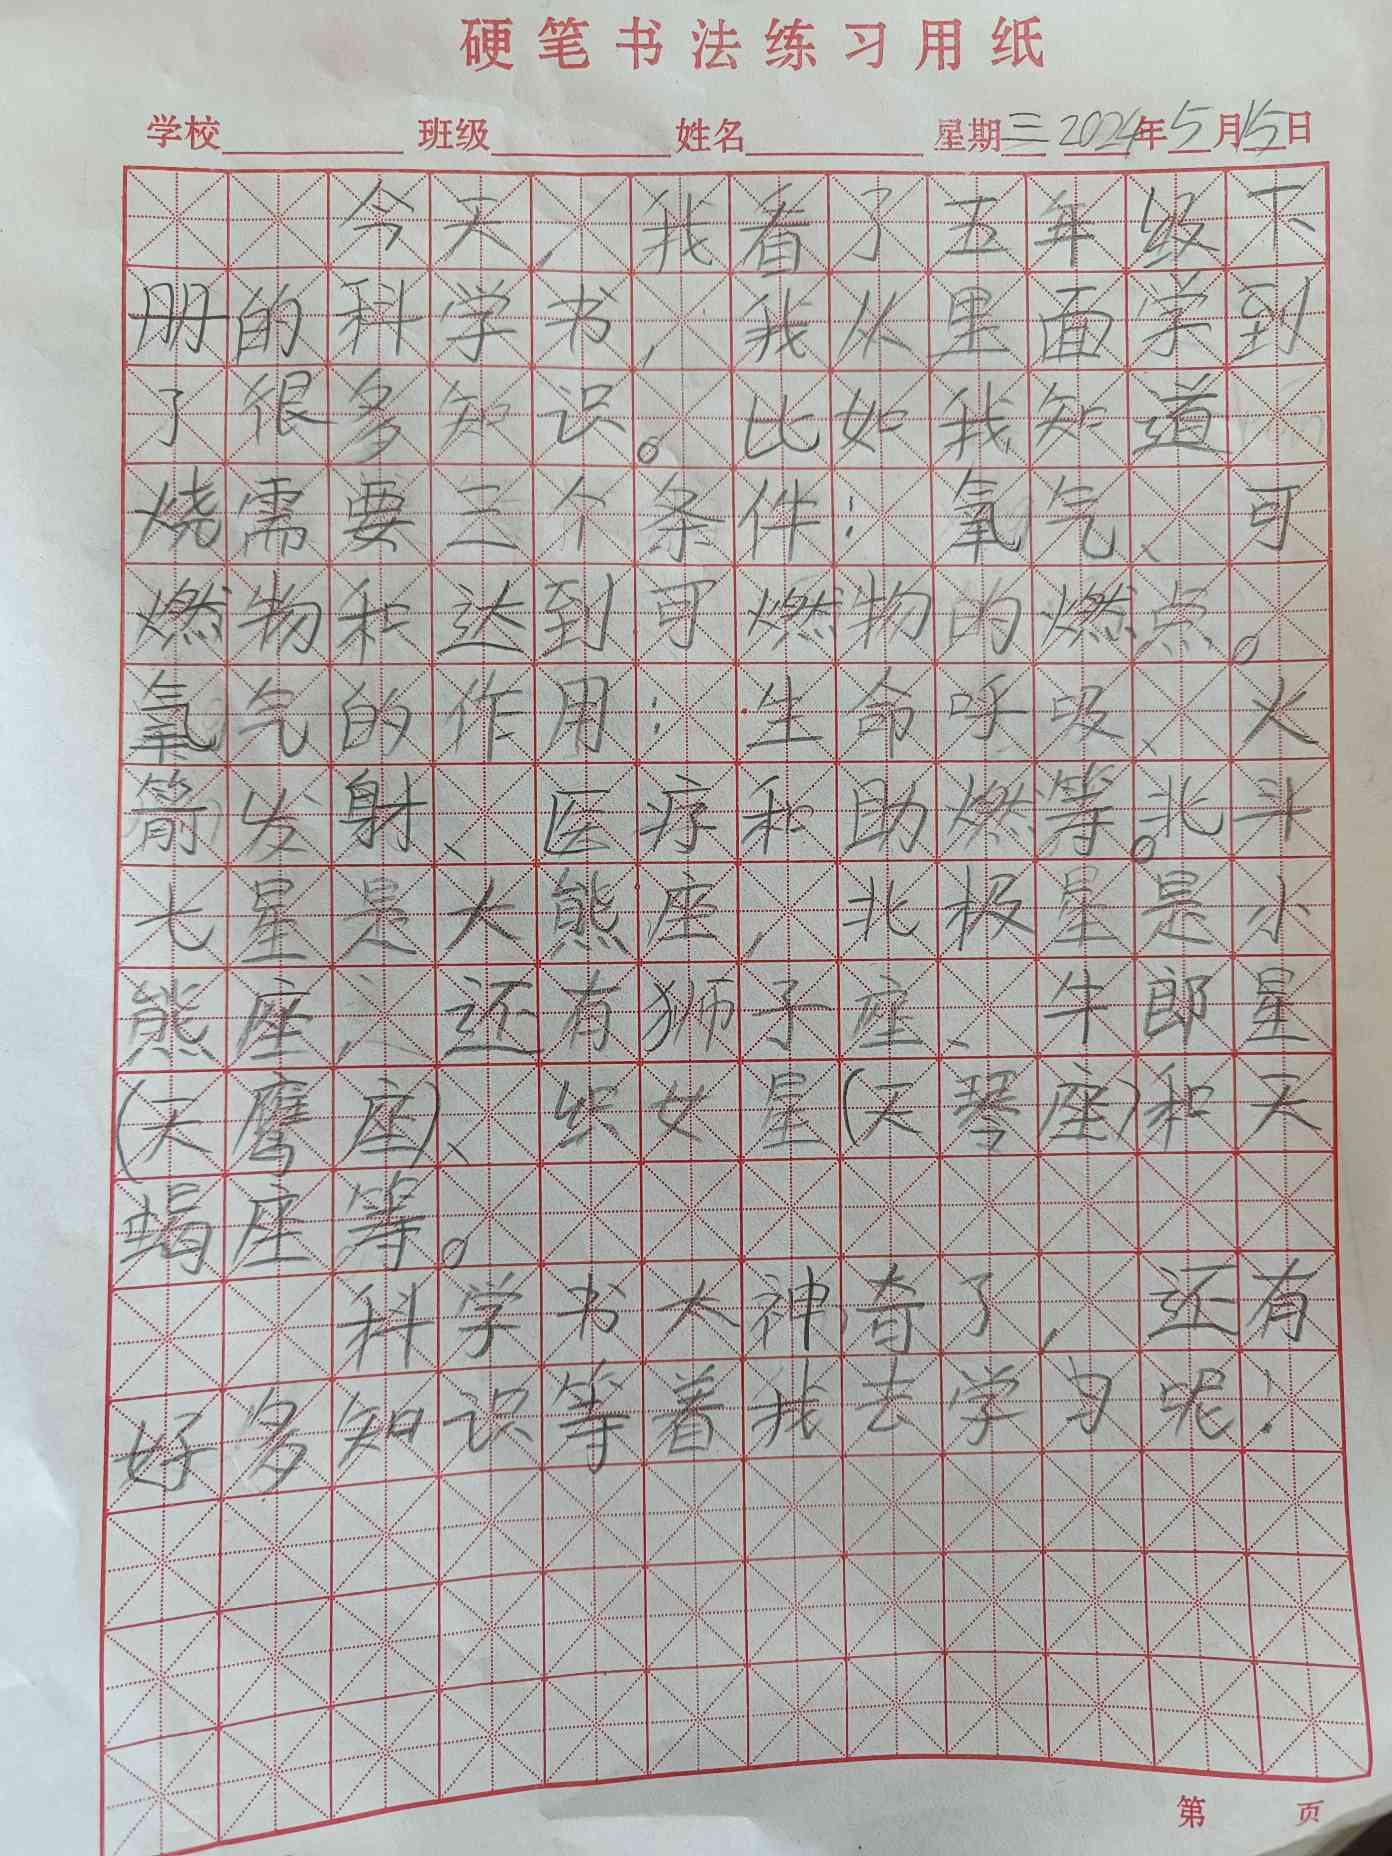 硬笔书法练习用纸
学校 班级 姓名 星期三 2024年5月15日
今天，我看了五年级下
册的科学书，我从里面学到
了很多知识。比如我知道
烧需要三个条件：氧气、可
燃物和达到可燃物的燃点。
氧气的作用：生命呼吸、火
箭发射、医疗和助燃等。北斗
七星是大熊座，北极星是小
熊座，还有狮子座、牛郎星
(天鹰座)、织女星(天琴座)和天
蝎座等。
科学书太神奇了，还有
好多知识等着我去学习呢！
第 页